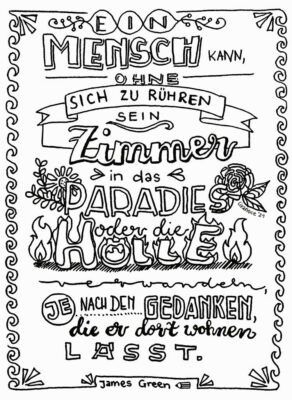 EIN
MENSCH KANN,
OHNE
SICH ZU RÜHREN
SEIN
Zimmer
in das
PARADIES
oder die
HÖLLE
verwandeln,
JE NACH DEN GEDANKEN,
die er dort wohnen
LÄSST.
James Green